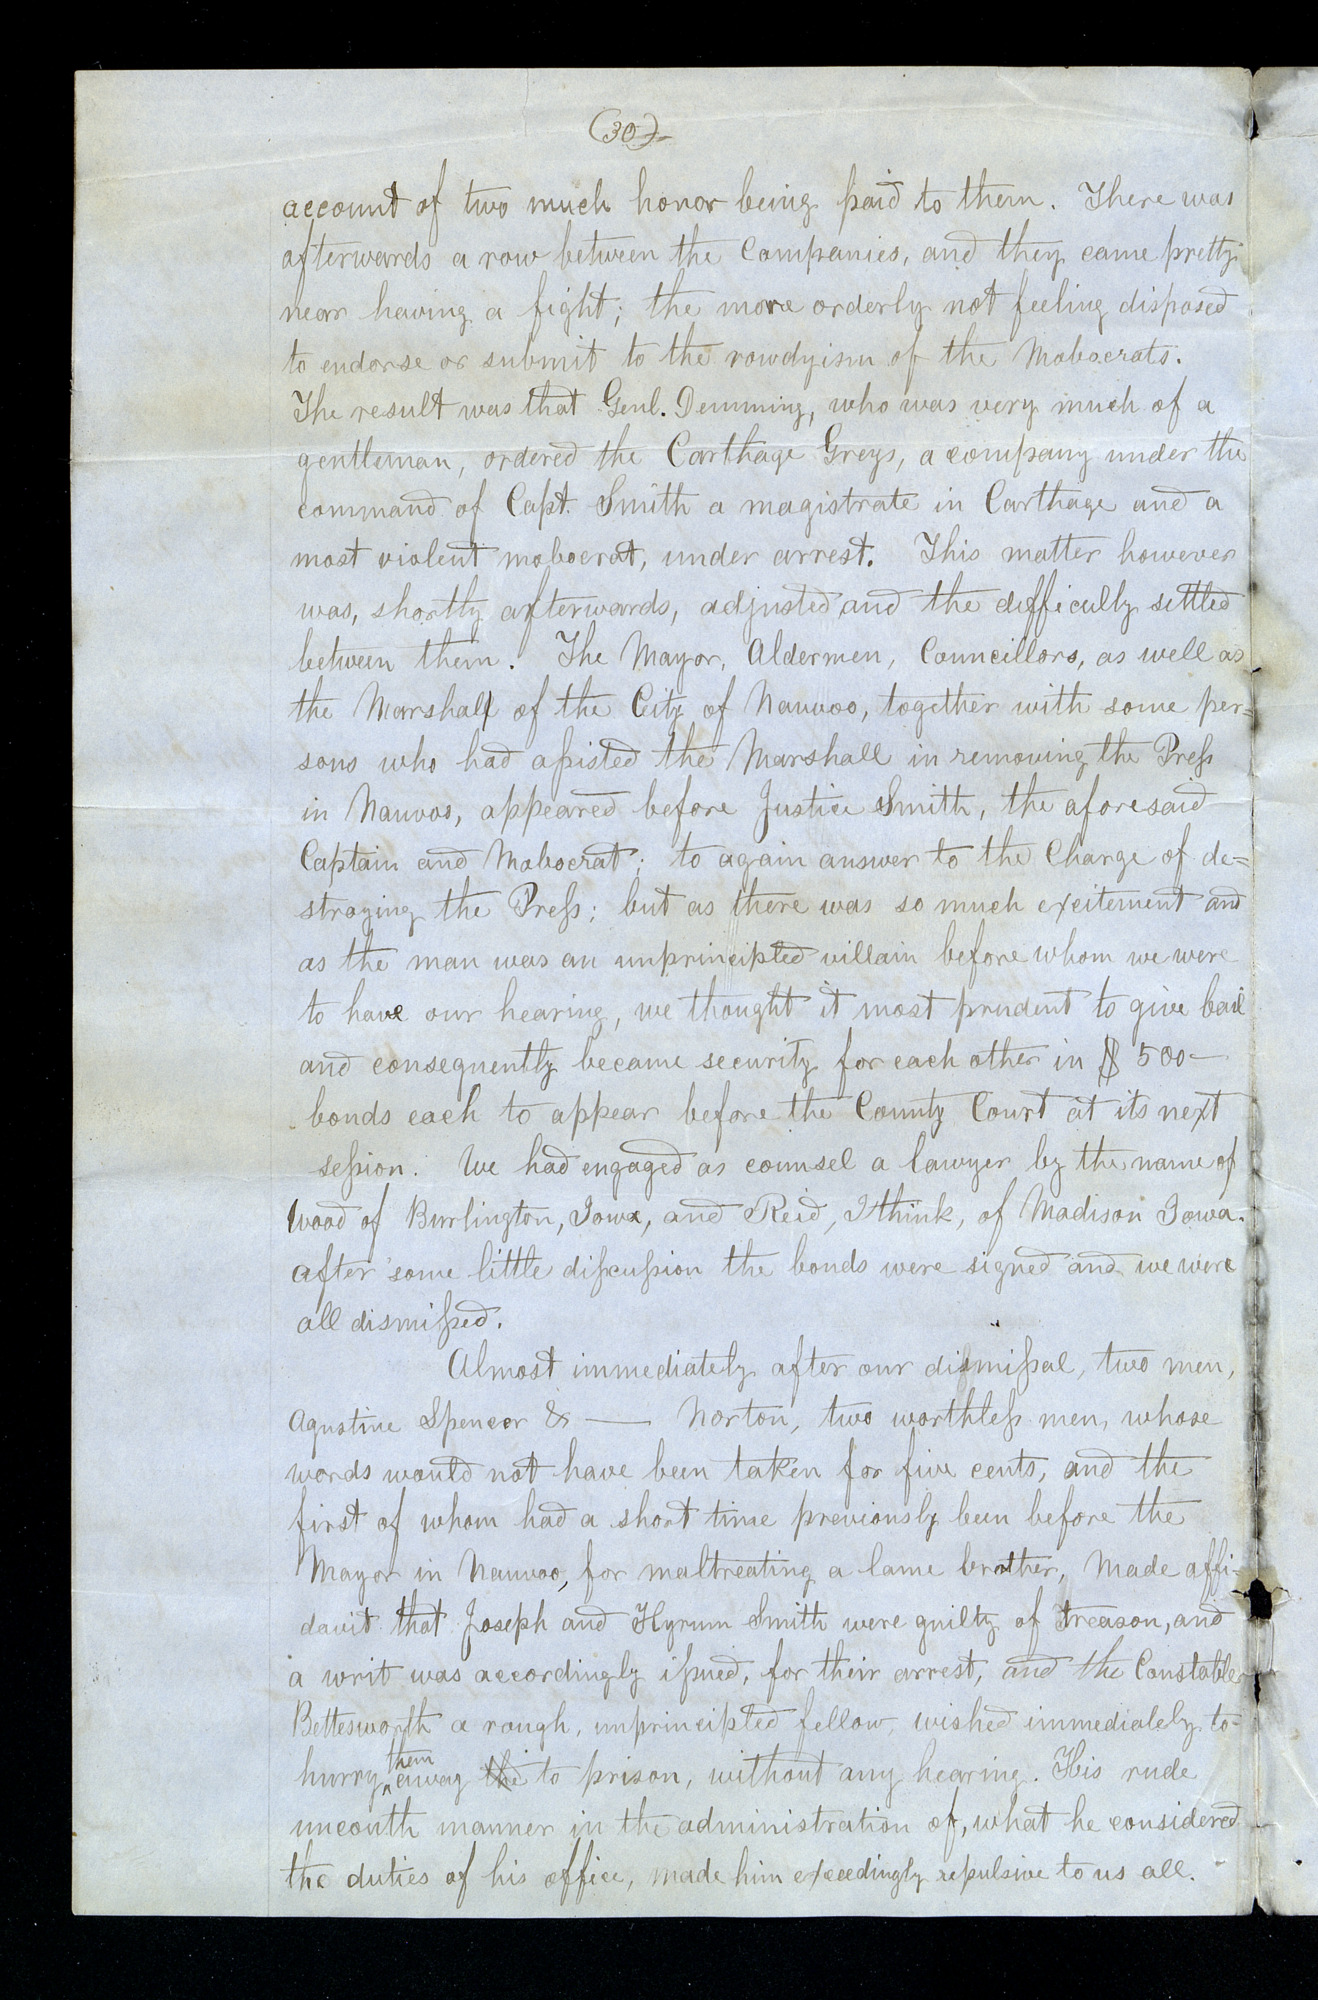 (30)
account of two much honor being paid to them. There was
afterwards a row between the Companies, and they came pretty
near having a fight; the more orderly not feeling disposed
to endorse or submit to the rowdyism of the Mobocrats.
The result was that Genl. Demming, who was very much of a
gentleman, ordered the Carthage Greys, a company under the
command of Capt. Smith a magistrate in Carthage and a
most violent mobocrat, under arrest. This matter however
was, shortly afterwards, adjusted and the difficulty settled
between them. The Mayor, Aldermen, Councillors, as well as
the Marshall of the City of Nauvoo, together with some per=
sons who had aſsisted the Marshall in removing the Preſs
in Nauvoo, appeared before Justice Smith, the aforesaid
Captain and Mobocrat; to again answer to the Charge of de=
stroying the Preſs; but as there was so much excitement and
as the man was an unprincipled villain before whom we were
to have our hearing, we thought it most prudent to give bail
and consequently became security for each other in $ 500—
bonds each to appear before the County Court at its next
seſsion. We had engaged as counsel a lawyer by the name of
Wood of Burlington, Iowa, and Reid, I think, of Madison Iowa.
after some little diſcuſsion the bonds were signed and we were
all dismiſsed.
Almost immediately after our dismiſsal, two men,
Agustine Spencer & — Norton, two worthleſs men, whose
words would not have been taken for five cents, and the
first of whom had a short time previously been before the
Mayor in Nauvoo, for maltreating a lame brother, Made affi-
davit that Joseph and Hyrum Smith were guilty of treason, and
a writ was accordingly iſsued, for their arrest, and the Constable
Bettesworth a rough, unprincipled fellow, wished immediately to
hurry them away the to prison, without any hearing. His rude
uncouth manner in the administration of, what he considered
the duties of his office, made him exceedingly repulsive to us all.